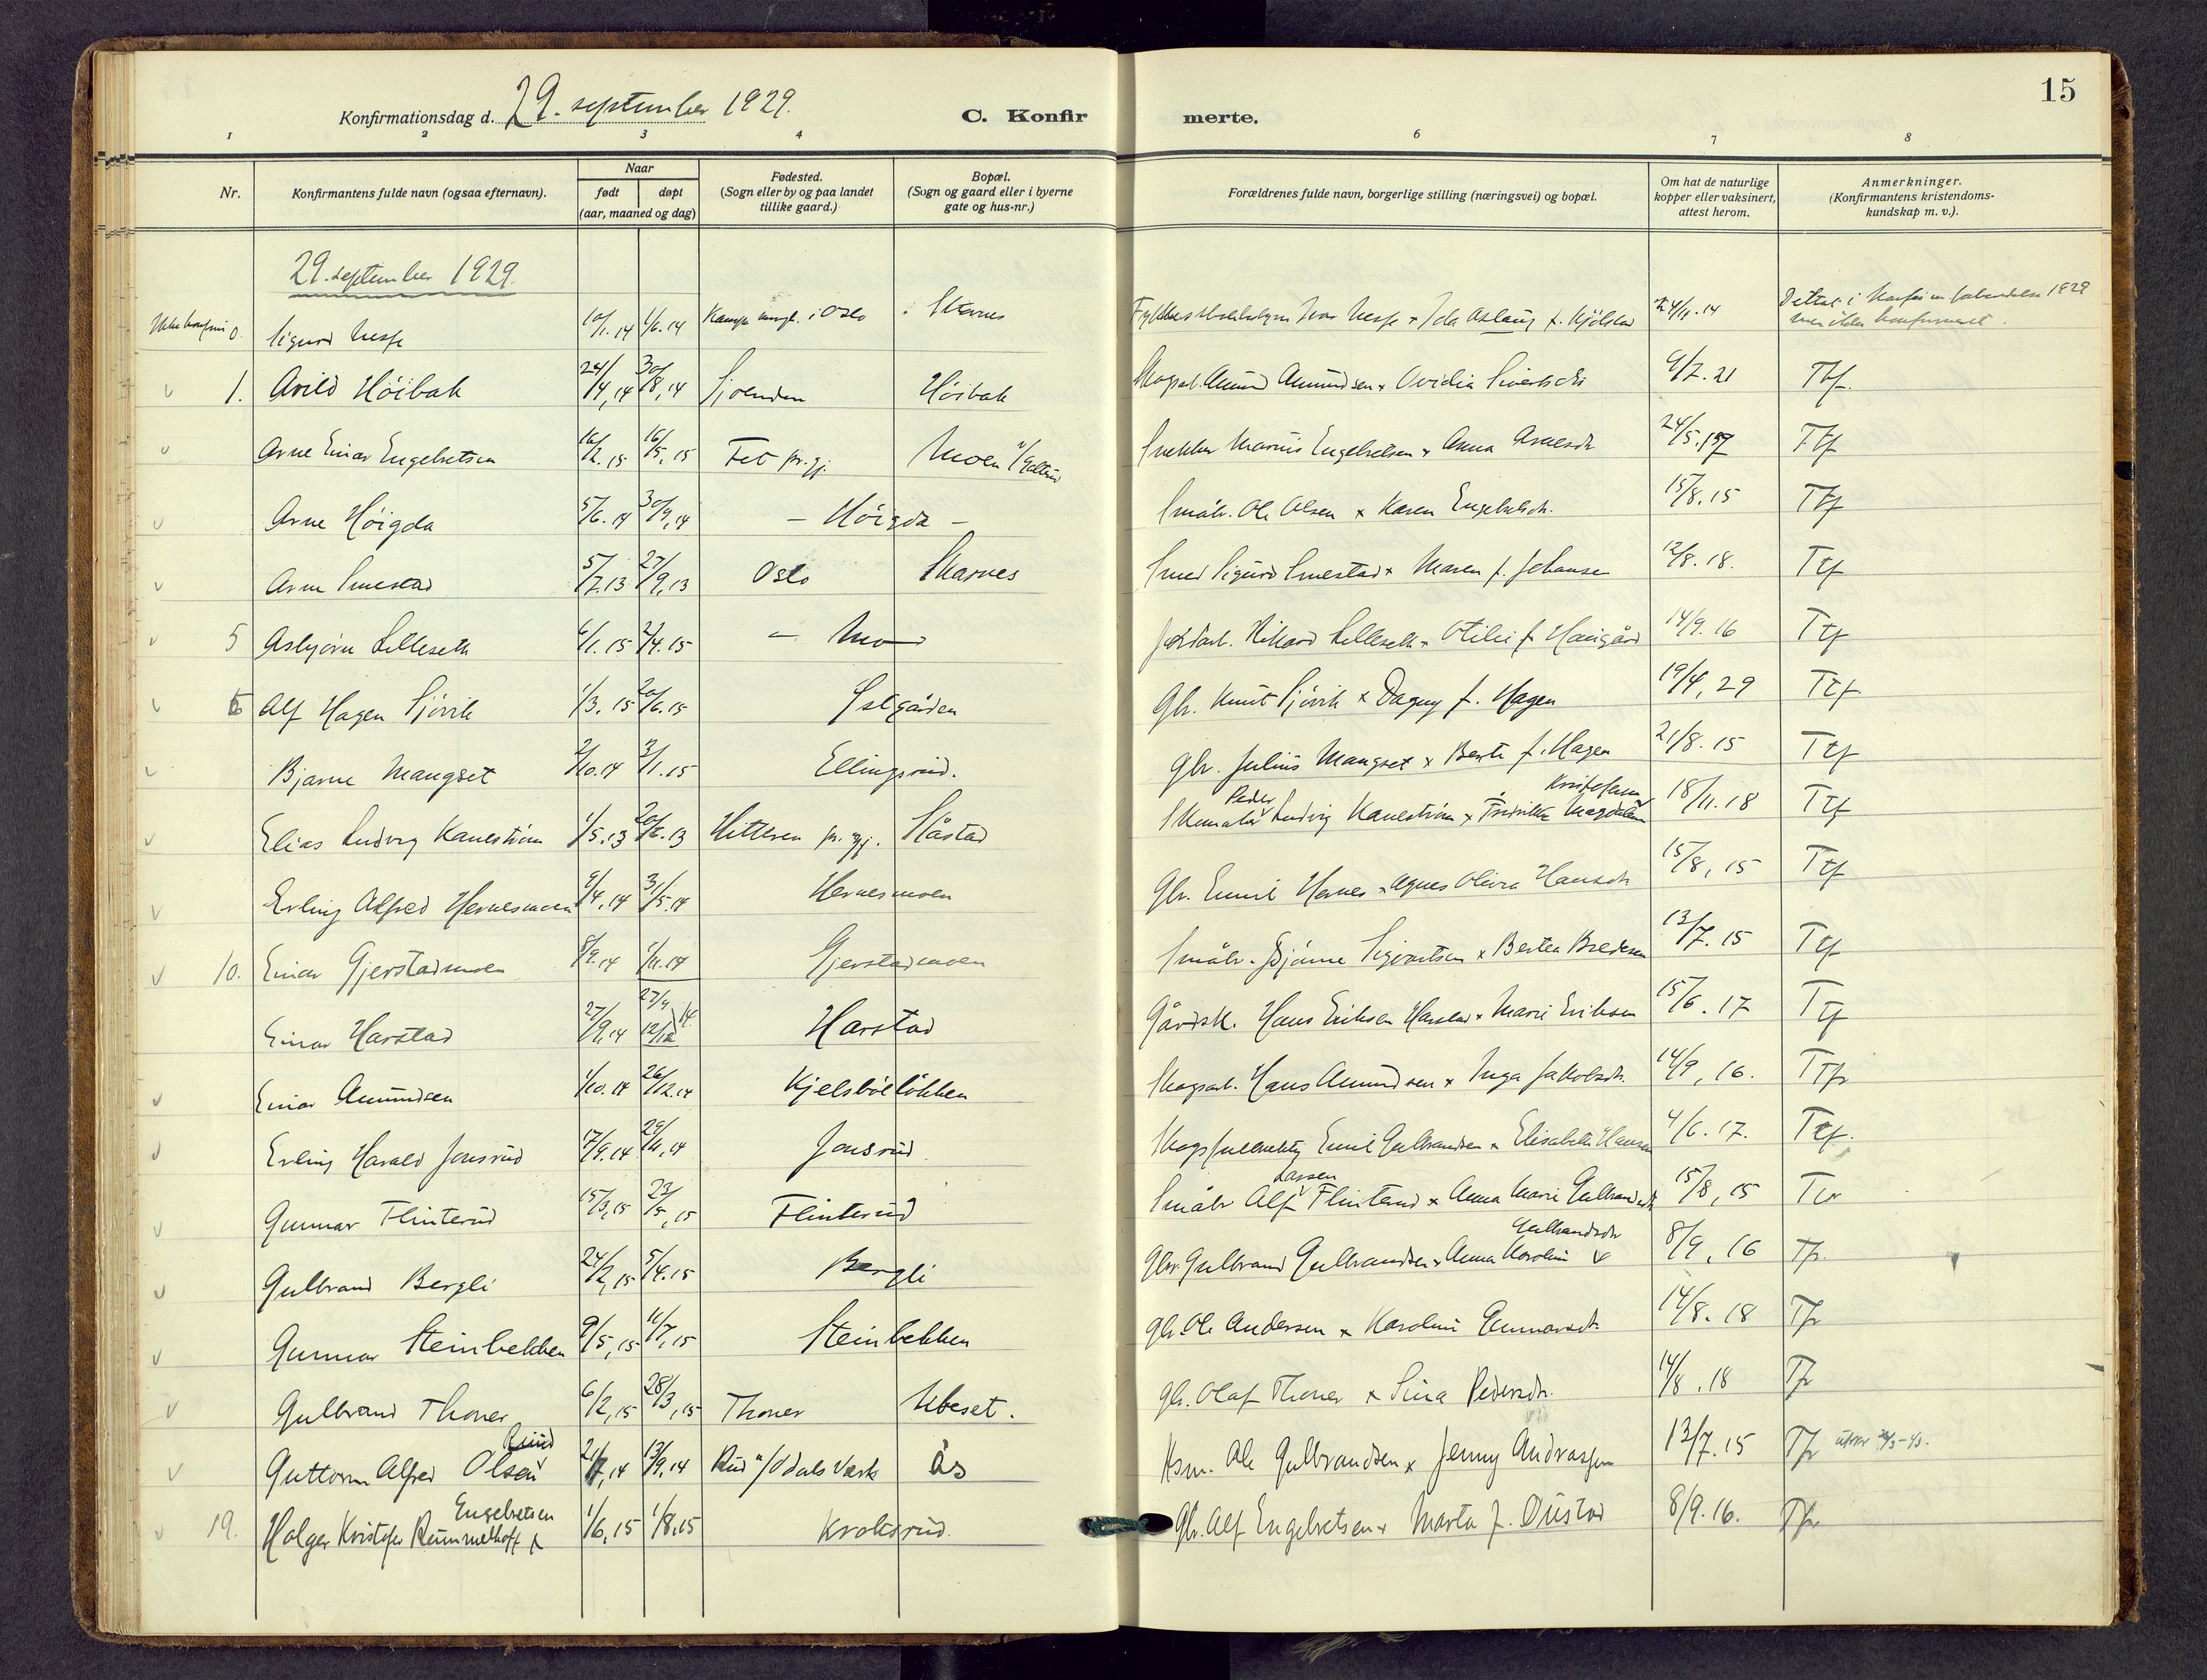 15
Konfirmationsdag d. 29. september 1929.
C. Konfirmerte.
1 2 3 4 6 7 8
Nr. Konfirmantens fulde navn (ogsaa efternavn). Naar født døpt (aar, maaned og dag) Fødested. (Sogn eller by og paa landet tillike gaard.) Bopæl. (Sogn og gaard eller i byerne gate og hus-nr.) Forældrenes fulde navn, borgerlige stilling (næringsvei) og bopæl. Om hat de naturlige kopper eller vaksinert, attest herom. Anmerkninger. (Konfirmantens kristendoms-kundskap m. v.).
29. september 1929
0. Sigurd 10/1.14 1/6.14 Kampen i Oslo Skarnes 24/11.14 1929
1. Arild Höibak 24/4,14 30/8,14 Sjöenden Höibak Skogsarb. Amund Amundsen x Ovidia Sivertsdr 9/7.21 Ttf.
Arne Einar Engebretsen 16/2.15 16/5,15 Fet pr.gj. Moen Snekker Marius Engebretsen x Anna Arnesdr 24/5. Ttf
Arne Höigda 5/6.14 30/9,14 – Höigda – Småbr. Ole Olsen x Karen Engebretsdr. 15/8.15 Ttf
Arne Smestad 5/7.13 27/9,13 Oslo Skarnes Smed Sigurd Smestad x Maren f. Johansen 12/8.18. Ttf
5 Asbjörn Lilleseth 6/1.15 2/4.15 – Mo – Jordarb. Rikard Lilleseth x Otilie f. Haugård 14/9.16 Ttf
6 Alf Hagen Sjövik 1/3.15 20/6.15 Gbr. Knut Sjövik x Dagny f. Hagen 19/4,29 Ttf
Bjarne Mangset 2/10.14 3/1.15 Ellingsrud. Gbr. Julius Mangset x Berte f. Hagen 21/8.15 Ttf
Elias Ludvig Kaneström 1/5.13 Hitteren pr. gj. Såstad Peder Ludvig Kaneström x Fredrikke Magdalena Kristofersen 18/11.18 Ttf
Erling Alfred Hernesmoen 9/4,14 31/5.14 Hernesmoen Gbr. Emil Hernes x Agnes Olivia Hansdr 15/8,15 Ttf
10. Einar Gjerstadmoen 8/9.14 1/11.14 Gjerstadmoen Småbr. Sigvartsen x Bertea Bredesen 13/7.15 Ttf
Einar Harstad 27/9,14 27/9 12/12 14 Harstad Gårdsk. Hans Eriksen Harstad x Marie Eriksen 15/6.17 Ttf
Einar Amundsen 1/10.14 26/12.14 Kjelsböelökken Skogsarb. Hans Amundsen x Inga Jakobsdr. 14/9,16. Ttfr
Erling Harald Jonsrud 17/9.14 29/11,14 Jonsrud Skogsfullmektig Emil Gulbrandsen x Elisabeth Hansen 4/6.17. Ttf.
Gunnar Flinterud 15/3,15 23/5,15 Flinterud Småbr Alf Larsen Flinterud x Anna Marie Gulbrandsdr 15/8,15 Ttr
Gulbrand Bergli 24/2,15 5/4.15 Bergli Gbr. Gulbrand Gulbrandsen x Anna Karoline Gulbrandsdr 8/9,16 Tfr
Gunnar Steinbekken 9/5,15 11/7,15 Steinbekken Gbr. Ole Andersen x Karoline Gunnarsdr 14/8.18 Tfr
Gulbrand Thoner 6/2,15 28/3,15 Thoner Ubeset. Gbr. Olaf Thoner x Sina Pedersdr. 14/8.18 Tfr
Guttorm Alfred Olsen Ruud 21/7,14 13/9,14 Rud v/Odals Verk Ås Hsm. Ole Gulbrandsen x Jenny Andreassen 13/7.15 Tfr
19. Holger Kristofer Rummelhoff Engebretsen 1/6,15 1/8,15 Kroksrud. Gbr. Alf Engebretsen x Marta f. Dustad 8/9.16. Tfr